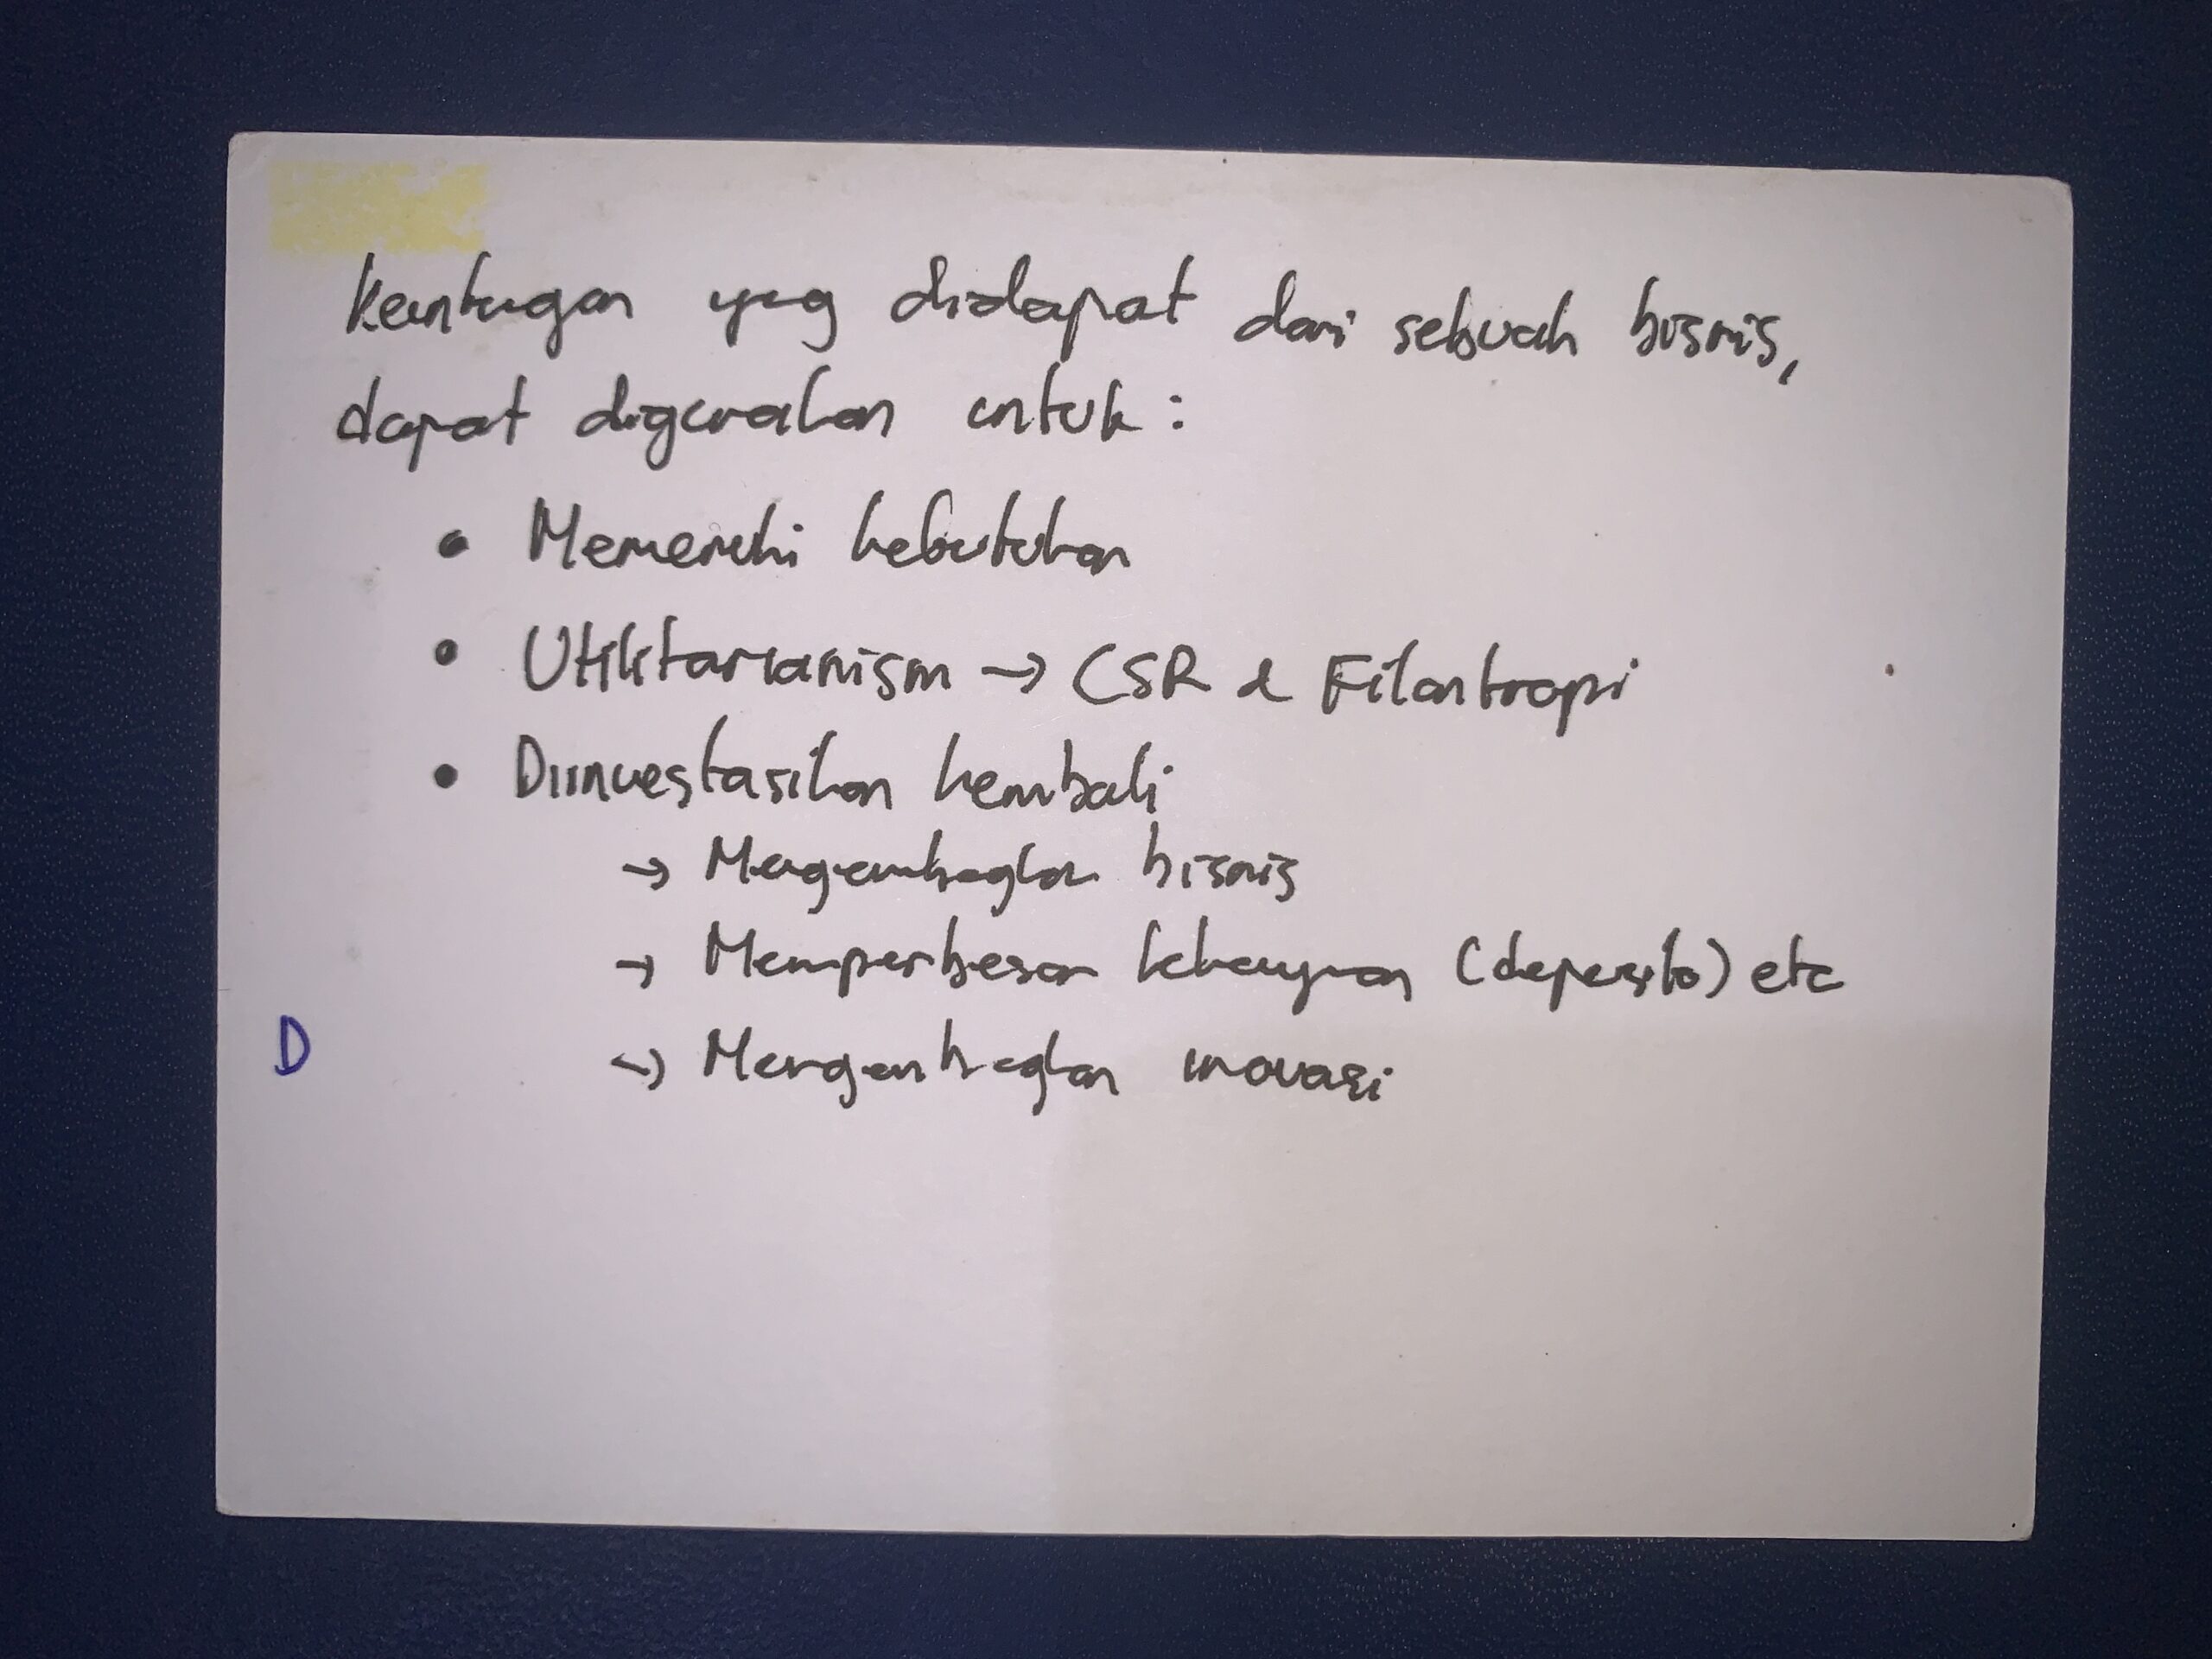 Keuntungan yang didapat dari sebuah bisnis,
dapat digunakan untuk:
• Memenuhi kebutuhan
• Utilitarianism → CSR & Filantropi
• Diinvestasikan kembali
→ Mengembangkan bisnis
→ Memperbesar kekayaan (deposito) etc
D
→ Mengembangkan inovasi